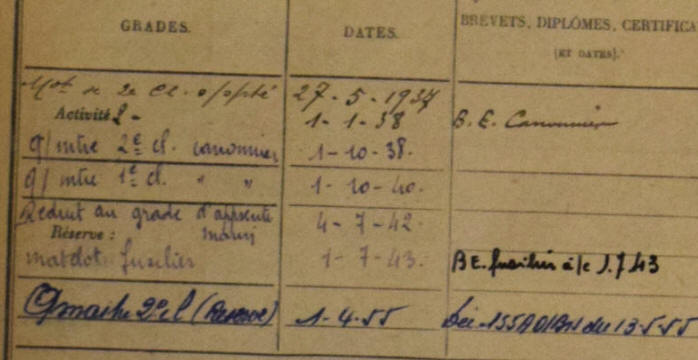 GRADES. DATES. BREVETS, DIPLÔMES, CERTIFICA
(ET DATES).
Mot de 2e cl. 27-5-1937
Activité 2- 1-1-38 B.E. Canonnier
q/mtre 2e cl. canonnier 1-10-38.
q/mtre 1e cl. " " 1-10-40.
Réduit au grade d'apprenti 4-7-42.
Réserve: marin
matelot fusilier 1-7-43. BE. fusilier à/c 1.7.43
2e cl (Réserve) 1-4-55 du 13-5-55